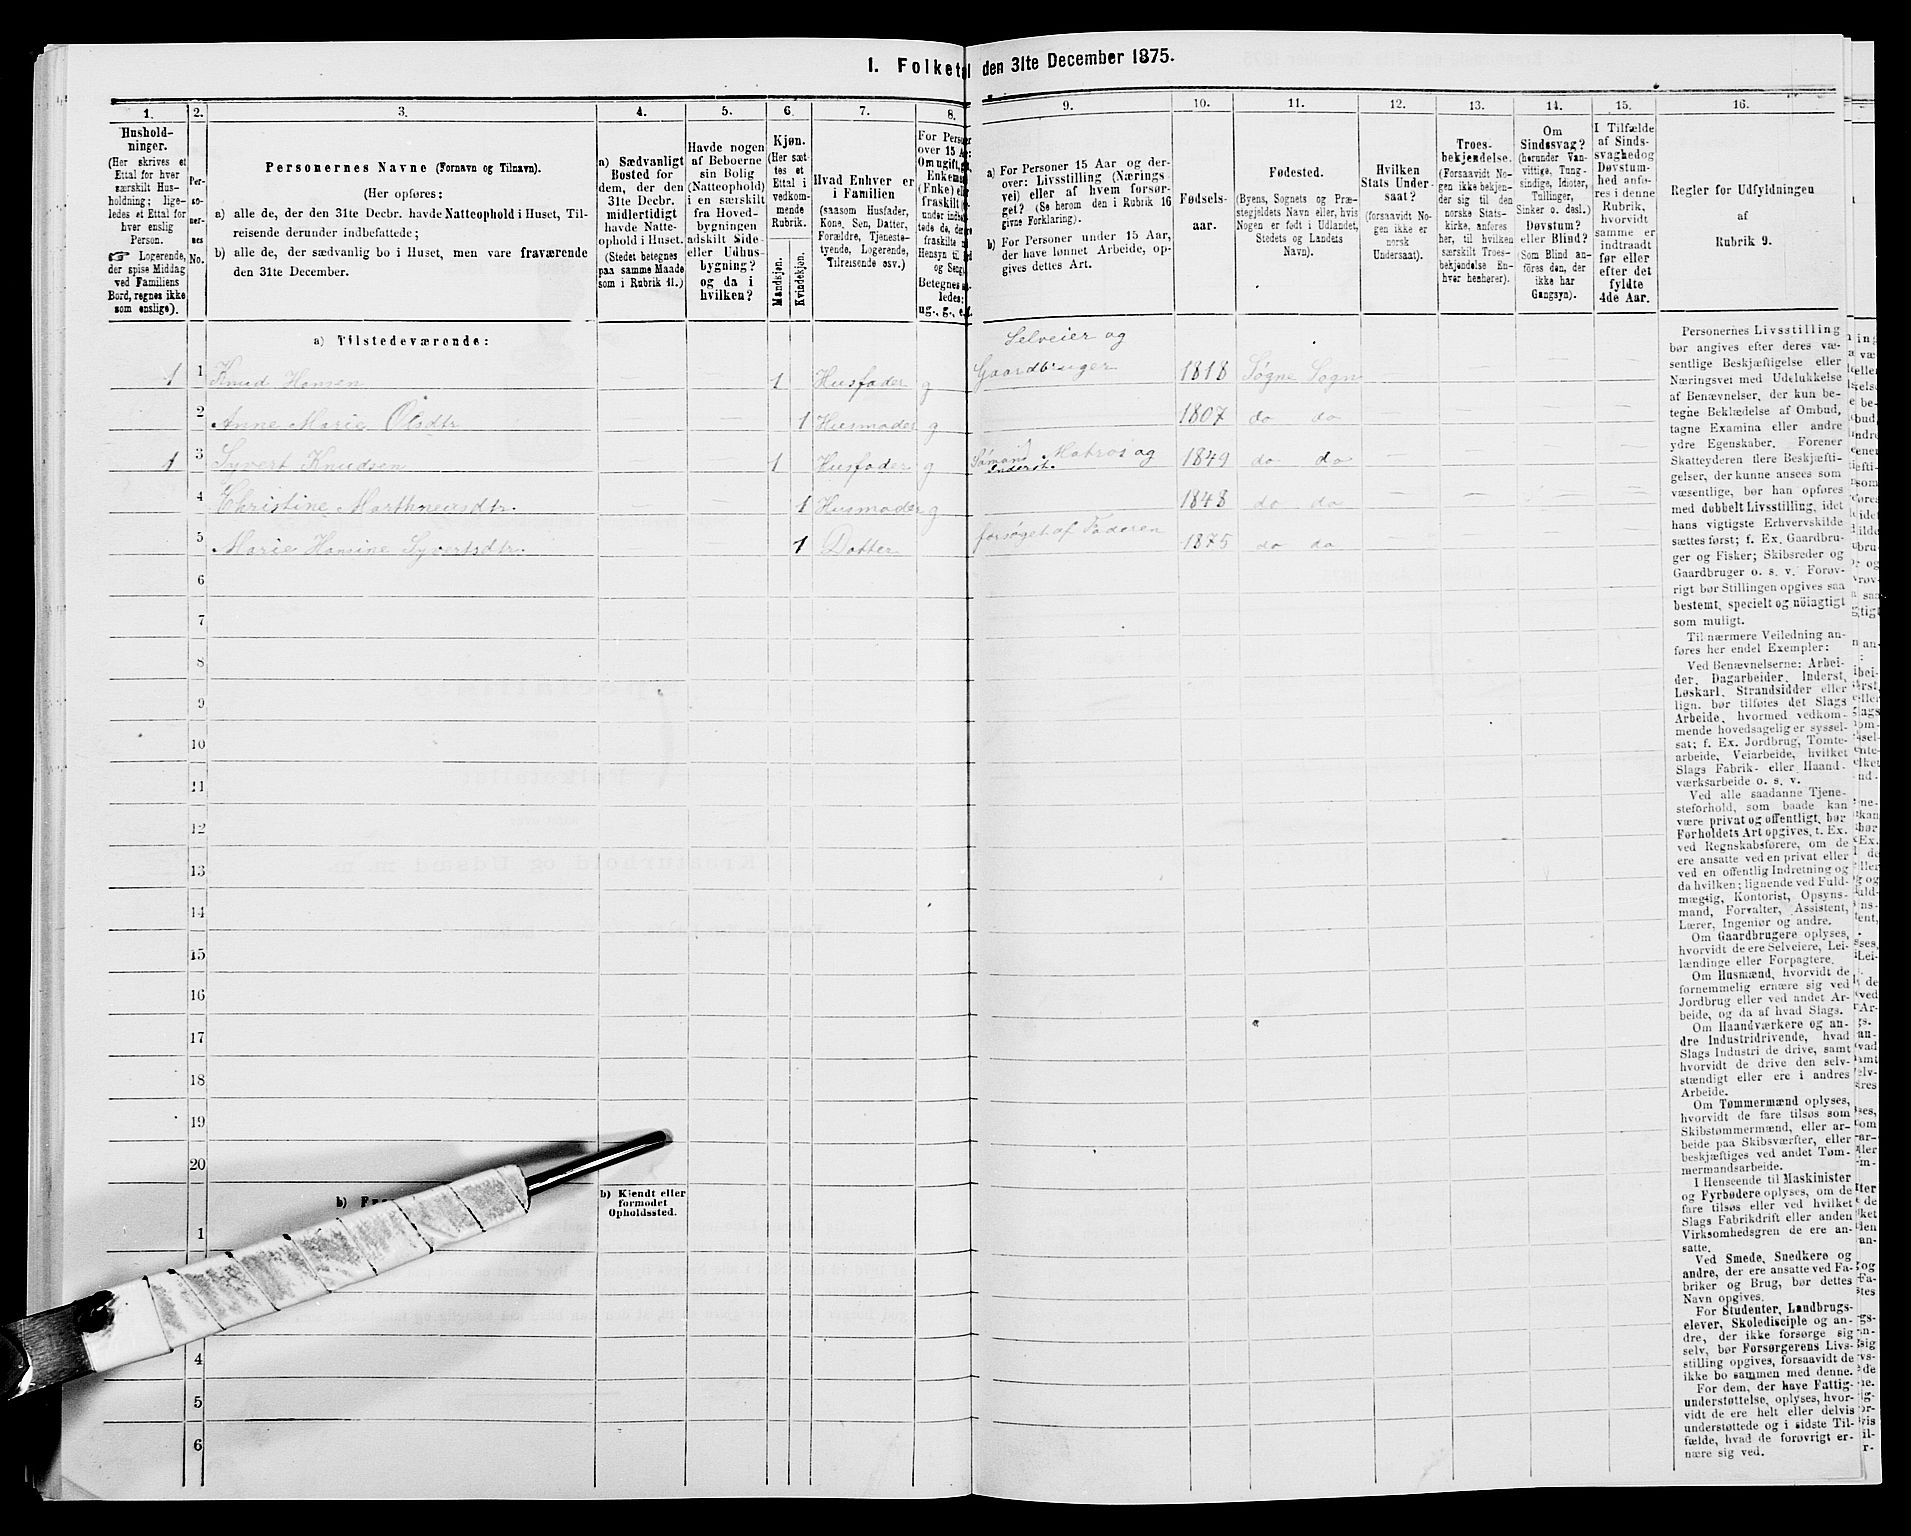 I. Folketal den 31te December 1875.
1.
Hushold-
ninger.
(Her skrives et
Ettal for hver
særskilt Hus-
holdning; lige-
ledes et Ettal for
hver enslig
Person.
☞ Logerende,
der spise Middag
ved Familiens
Bord, regnes ikke
som enslige).
2.
Per-
so-
ner-
nes
No.
3.
Personernes Navne (Fornavn og Tilnavn).
(Her opføres:
a) alle de, der den 31te Decbr. havde Natteophold i Huset, Til-
reisende derunder indbefattede;
b) alle de, der sædvanlig bo i Huset, men vare fraværende
den 31te December.
4.
a) Sædvanligt
Bosted for
dem, der den
31te Decbr.
midlertidigt
havde Natte-
ophold i Huset.
(Stedet betegnes
paa samme Maade
som i Rubrik 11.)
5.
Havde nogen
af Beboerne
sin Bolig
(Natteophold)
i en særskilt
fra Hoved-
bygningen
adskilt Side-
eller Udhus-
bygning?
og da i
hvilken?
6.
Kjøn.
(Her sæt-
tes et
Ettal i
vedkom-
mende
Rubrik.
Mandskjøn.
Kvindekjøn.
7.
Hvad Enhver er
i Familien
(saasom Husfader,
Kone, Søn, Datter,
Forældre, Tjeneste-
tyende, Logerende,
Tilreisende osv.)
8.
For Person
over 15 Aar:
Om ugift, gift,
Enkemand
(Enke) eller
fraskilt
ug., g., e., f.
9.
a) For Personer 15 Aar og der-
over: Livsstilling (Nærings-
vei) eller af hvem forsør-
get? (Se herom den i Rubrik 16
givne Forklaring).
b) For Personer under 15 Aar,
der have lønnet Arbeide, op-
gives dettes Art.
10.
Fødsels-
aar.
11.
Fødested.
(Byens, Sognets og Præ-
stegjeldets Navn eller, hvis
Nogen er født i Udlandet,
Stedets og Landets
Navn).
12.
Hvilken
Stats Under-
saat?
(forsaavidt No-
gen ikke er
norsk
Undersaat).
13.
Troes-
bekjendelse.
(Forsaavidt No-
gen ikke bekjen-
der sig til den
norske Stats-
kirke, anføres
her, til hvilken
særskilt Troes-
bekjendelse En-
hver henhører).
14.
Om
Sindssvag?
(herunder Van-
vittige, Tung-
sindige, Idioter,
Tullinger,
Sinker o. desl.)
Døvstum?
eller Blind?
(Som Blind an-
føres den, der
ikke har
Gangsyn).
15.
I Tilfælde
af Sinds-
svaghed og
Døvstum-
hed anfø-
res i denne
Rubrik,
hvorvidt
samme er
indtraadt
før eller
efter det
fyldte
4de Aar.
16.
Regler for Udfyldningen
af
Rubrik 9.
a) Tilstedeværende:
Selveier og
1 1 Knud Hansen 1 Husfader g Gaardbruger 1818 Søgne Sogn
2 Anne Marie Olsdtr 1 Husmoder g 1807 do do
1 3 Syvert Knudsen 1 Husfader g Sømand Matros og 1849 do do
Inderst.
4 Christine Marthneusdtr. 1 Husmoder g 1848 do do
5 Marie Hansine Syvertsdtr. 1 Datter forsøget af Faderen 1875 do do
6
7
8
9
10
11
12
13
14
15
16
17
18
19
20
b) Kjendt eller
formodet
Opholdssted.
1
4
5
6
Personernes Livsstilling
bør angives efter deres væ-
sentlige Beskjæftigelse eller
Næringsvei med Udelukkelse
af Benævnelser, der kun be-
tegne Beklædelse af Ombud,
tagne Examina eller andre
ydre Egenskaber. Forener
Skatteyderen flere Beskjæfti-
gelser, der kunne ansees som
væsentlige, bør han opføres
med dobbelt Livsstilling, idet
hans vigtigste Erhvervskilde
sættes først; f. Ex. Gaardbru-
ger og Fisker; Skibsreder og
Gaardbruger o. s. v. Forøv-
rigt bør Stillingen opgives saa
bestemt, specielt og nöiagtigt
som muligt.
Til nærmere Veiledning an-
føres her endel Exempler:
Ved Benævnelserne: Arbei-
der, Dagarbeider, Inderst,
Løskarl, Strandsidder eller
lign. bør tilføies det Slags
Arbeide, hvormed vedkom-
mende hovedsagelig er syssel-
sat; f. Ex. Jordbrug, Tomte-
arbeide, Veiarbeide, hvilket
Slags Fabrik- eller Haand-
værksarbeide o. s. v.
Ved alle saadanne Tjene-
steforhold, som baade kan
være privat og offentligt, bør
Forholdets Art opgives, t. Ex.
ved Regnskabsførere, om de
ere ansatte ved en privat eller
ved en offentlig Indretning og
da hvilken; lignende ved Fuld-
mægtig, Kontorist, Opsyns-
mand, Forvalter, Assistent,
Lærer, Ingeniør og andre.
Om Gaardbrugere oplyses,
hvorvidt de ere Selveiere, Lei-
lændinge eller Forpagtere.
Om Husmænd, hvorvidt de
fornemmelig ernære sig ved
Jordbrug eller ved andet Ar-
beide, og da af hvad Slags.
Om Haandværkere og an-
dre Industridrivende, hvad
Slags Industri de drive, samt
hvorvidt de drive den selv-
stændigt eller ere i andres
Arbeide.
Om Tømmermænd oplyses,
hvorvidt de fare tilsøs som
Skibstømmermænd, eller ar-
beide paa Skibsværfter, eller
beskjæftiges ved andet Tøm-
mermandsarbeide.
I Henseende til Maskinister
og Fyrbødere oplyses, om de
fare tilsøs eller ved hvilket
Slags Fabrikdrift eller anden
Virksomhedsgren de ere an-
satte.
Ved Smede, Snedkere og
andre, der ere ansatte ved Fa-
briker og Brug, bør dettes
Navn opgives.
For Studenter, Landbrugs-
elever, Skoledisciple og an-
dre, der ikke forsørge sig
selv, bør Forsørgerens Livs-
stilling opgives, forsaavidt de
ikke bo sammen med denne.
For dem, der have Fattig-
understøttelse, oplyses, hvor-
vidt de ere helt eller delvis
understøttede og i sidste Til-
fælde, hvad de forøvrigt er-
nære sig ved.